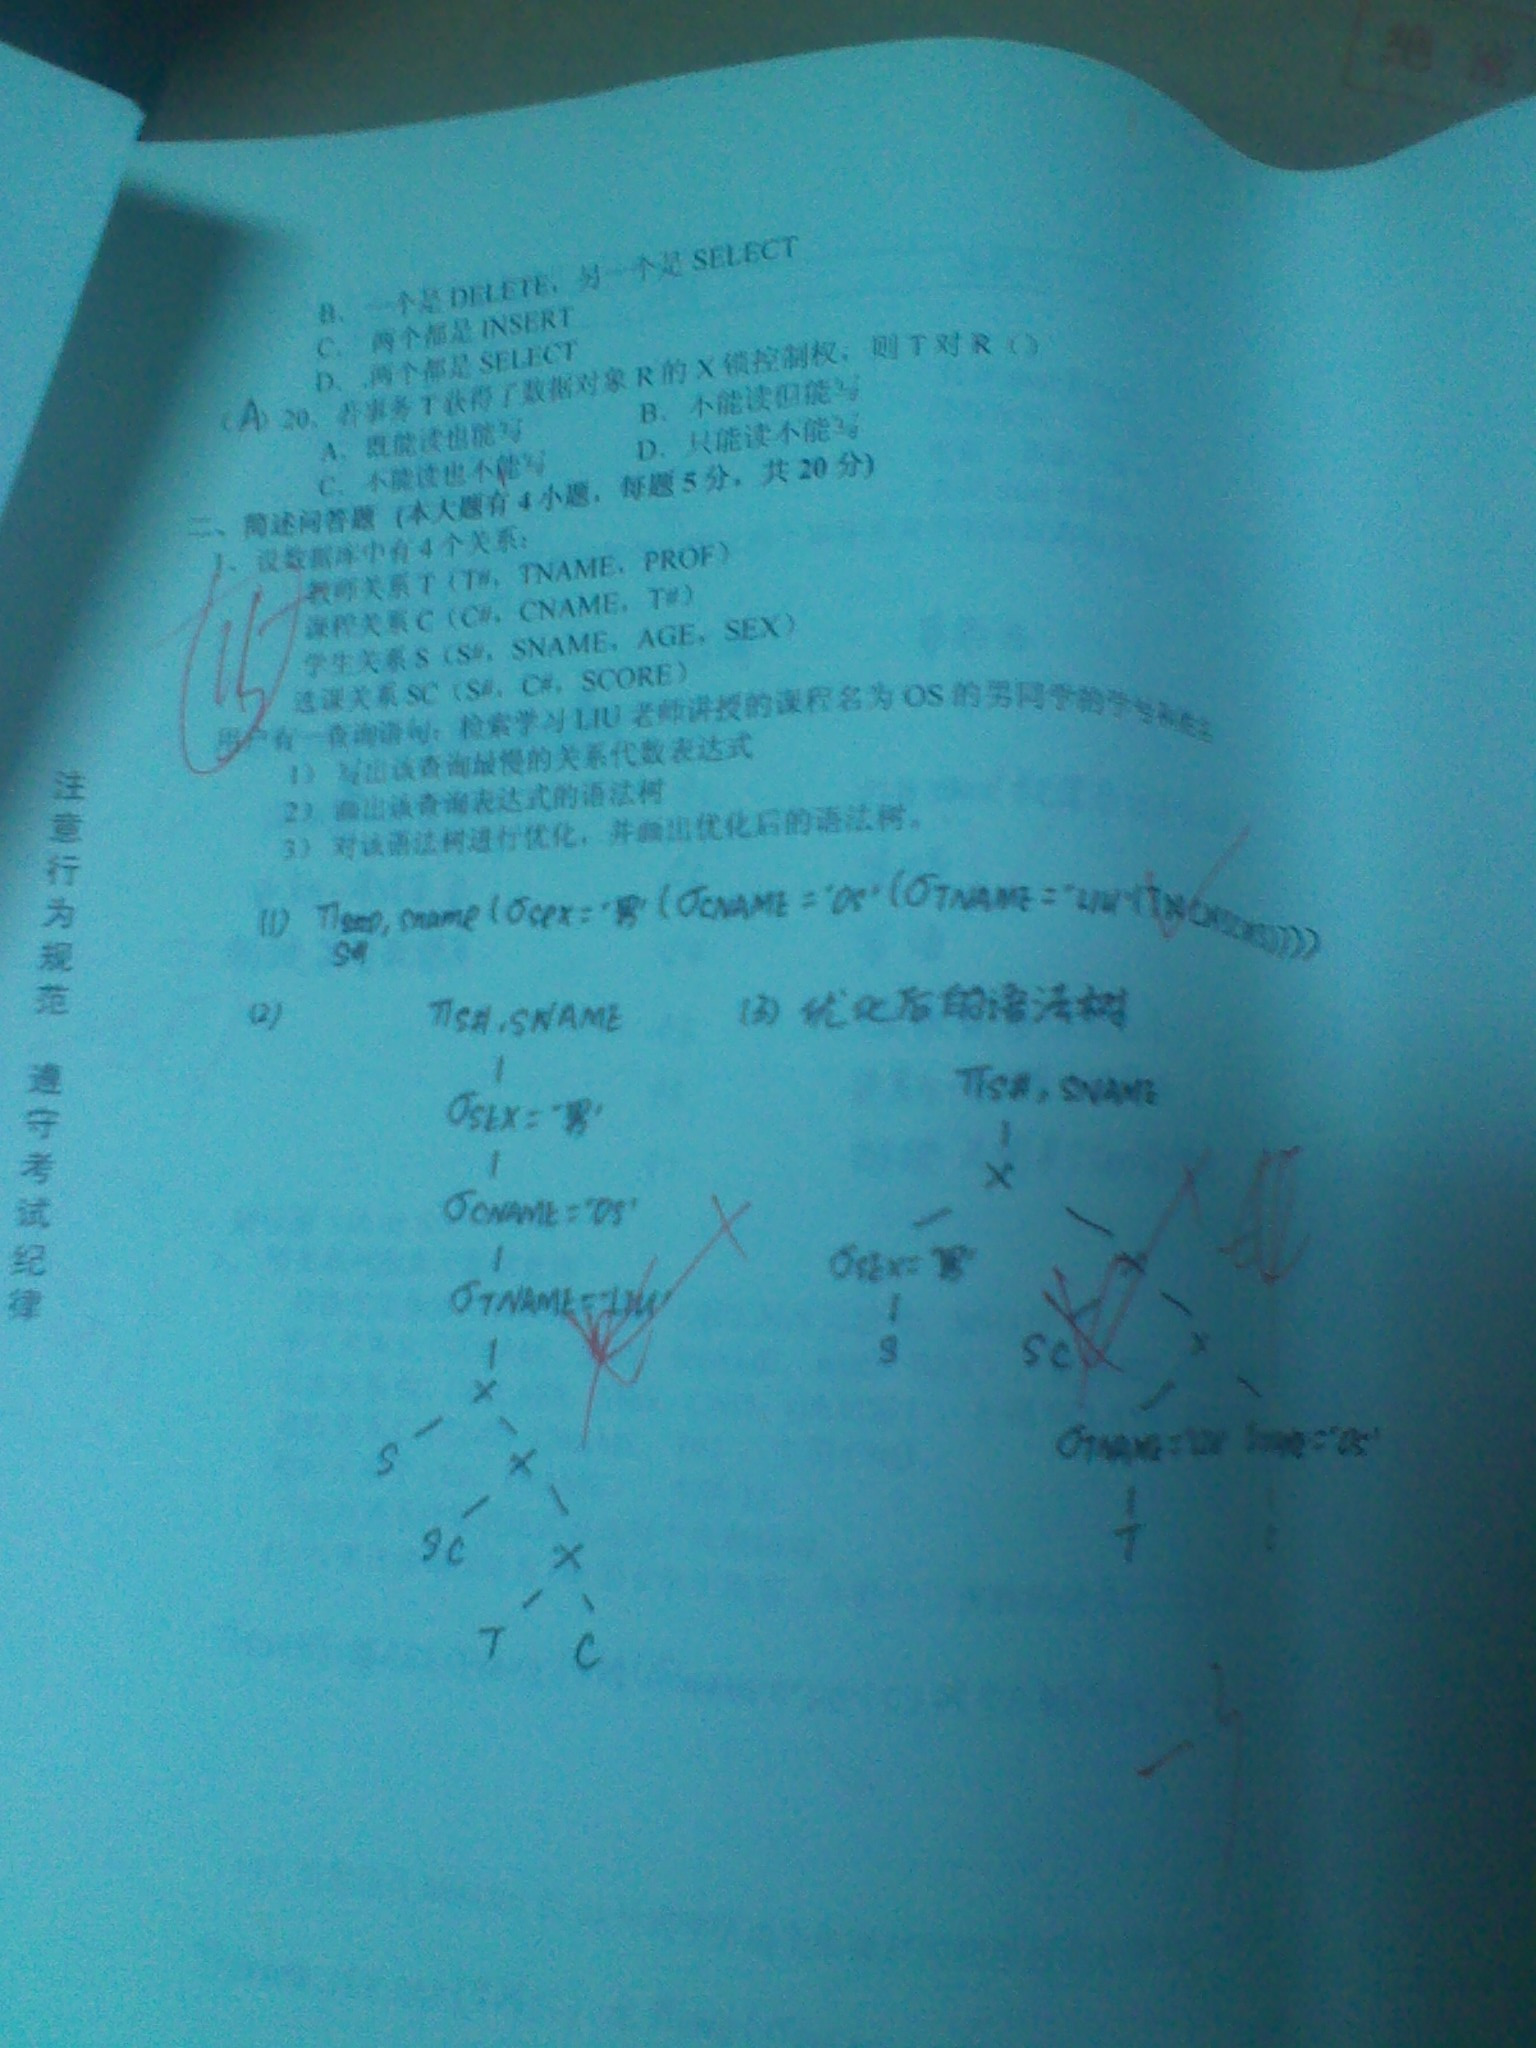 绝
B、 一个是 DELETE，另一个是 SELECT
C、 两个都是 INSERT
D、 两个都是 SELECT
（A）20、若事务 T 获得了数据对象 R 的 X 锁控制权，则 T 对 R（）
A、既能读也能写 B、不能读但能写
C、不能读也不能写 D、只能读不能写
二、简述问答题（本大题有 4 小题，每题 5 分，共 20 分）
1、设数据库中有 4 个关系：
教师关系 T（T#，TNAME，PROF）
课程关系 C（C#，CNAME，T#）
学生关系 S（S#，SNAME，AGE，SEX）
选课关系 SC（S#，C#，SCORE）
用户有一查询语句：检索学习 LIU 老师讲授的课程名为 OS 的男同学的学号和姓名
1） 写出该查询最慢的关系代数表达式
2） 画出该查询表达式的语法树
3） 对该语法树进行优化，并画出优化后的语法树。
(1) π , sname (σsex='男' (σCNAME='OS' (σTNAME='LIU'(
S#
(2) πS#,SNAME (3) 优化后的语法树
πS#,SNAME
σSEX='男'
×
σCNAME='OS'
σSEX='男' ×
σTNAME='LIU'
S SC ×
×
σTNAME='LIU' ='OS'
S ×
T
SC ×
T C
注意行为规范 遵守考试纪律